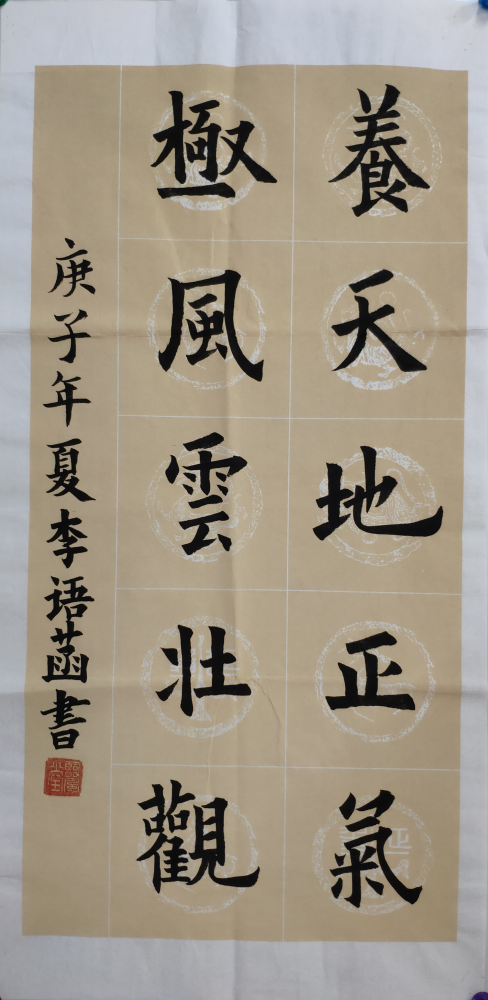 養天地正氣
極風雲壯觀
庚子年夏李语菡書